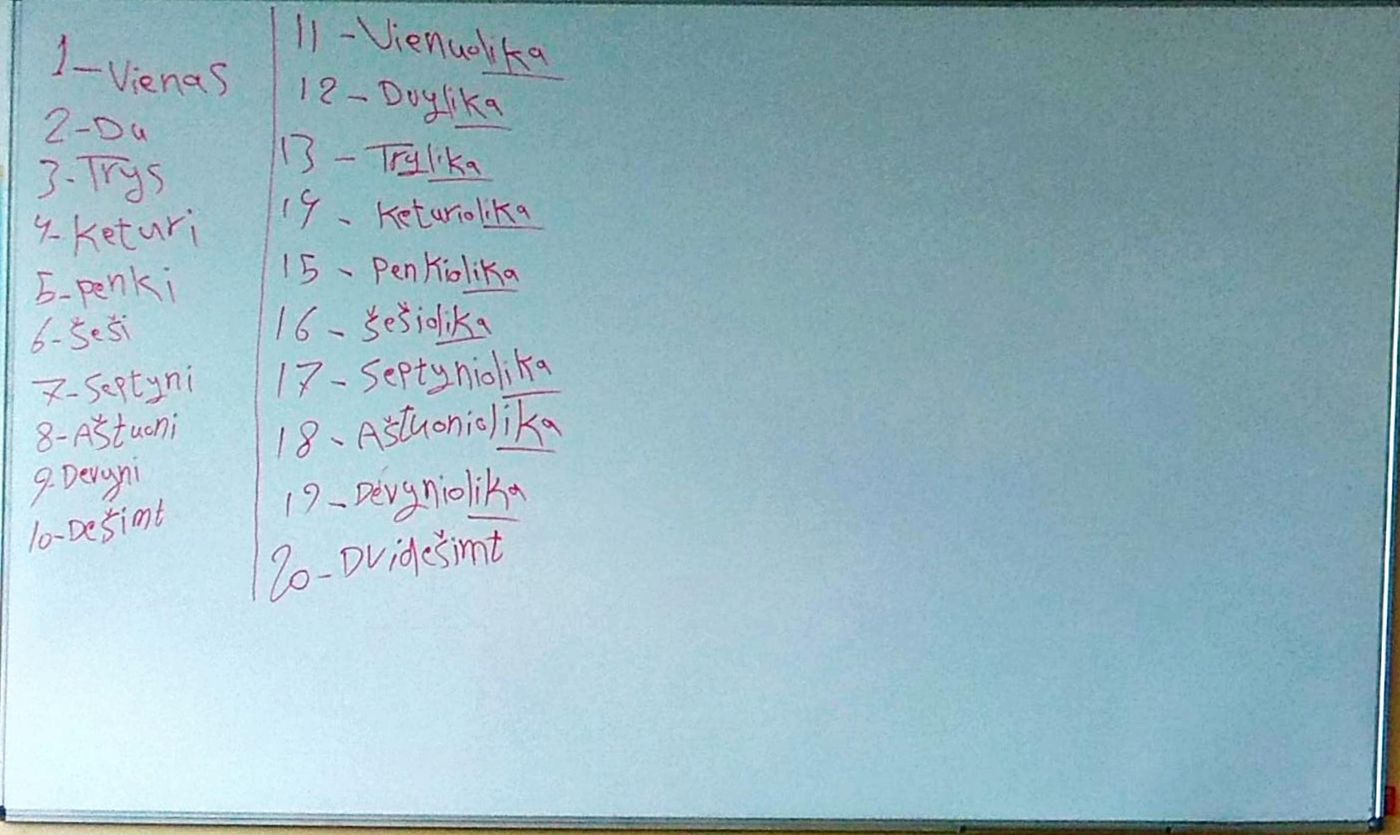 1-Vienas
2-Du
3-Trys
4-keturi
5-penki
6-šeši
7-septyni
8-Aštuoni
9-Devyni
10-Dešimt
11-Vienuolika
12-Dvylika
13-Trylika
14-keturiolika
15-penkiolika
16-šešiolika
17-septyniolika
18-Aštuoniolika
19-Devyniolika
20-Dvidešimt